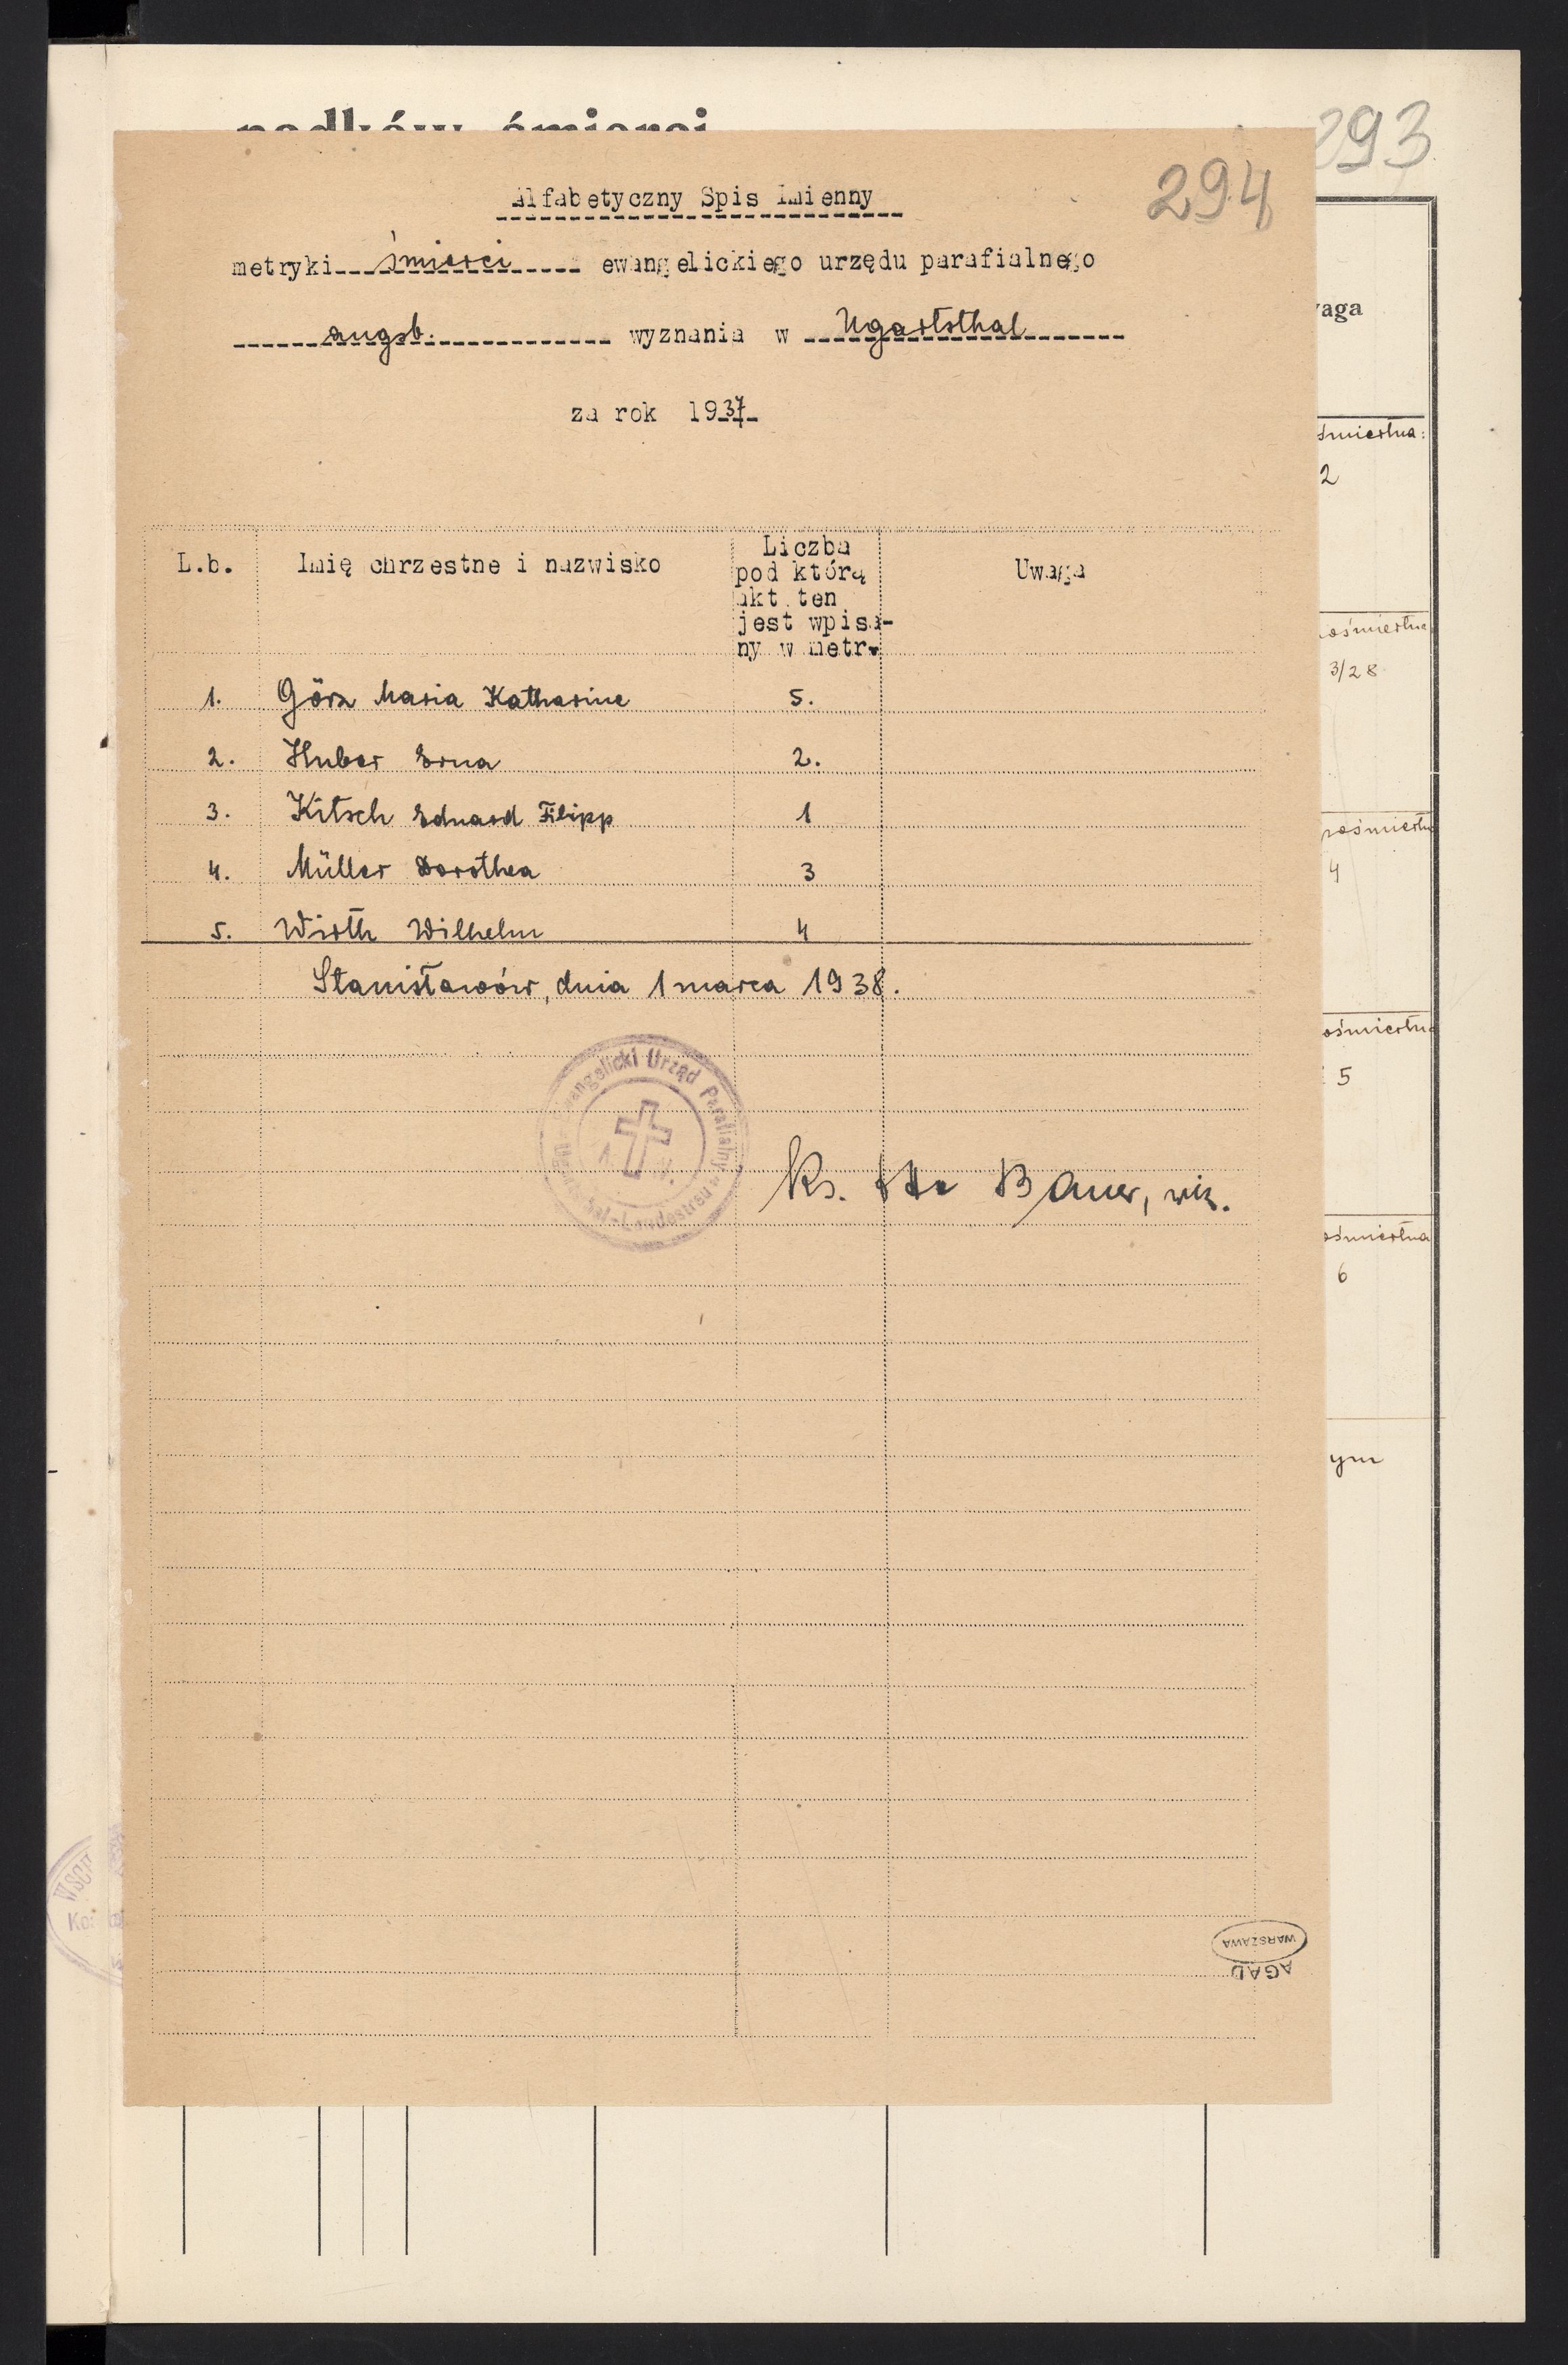 293
294
Alfabetyczny Spis Imienny
metryki śmierci ewangelickiego urzędu parafialnego
augsb. wyznania w Ugartsthal
za rok 1937
L.b. Imię chrzestne i nazwisko Liczba pod którą akt ten jest wpisa- ny w metr. Uwaga
1. Görz Maria Katharine 5.
2. Huber Erna 2.
3. Kitsch Eduard Filipp 1
4. Müller Dorothea 3
5. Wirth Wilhelm 4
Stanisławów, dnia 1 marca 1938.
Ewangelicki Urząd Parafialny
Landestreu
Ks. Bauer, wik.
WARSZAWA
AGAD
aga
śmiertna:
2
ośmiertna
3/28
pośmiertn
4
ośmiertna
5
ośmiertna
6
ym
WSCH